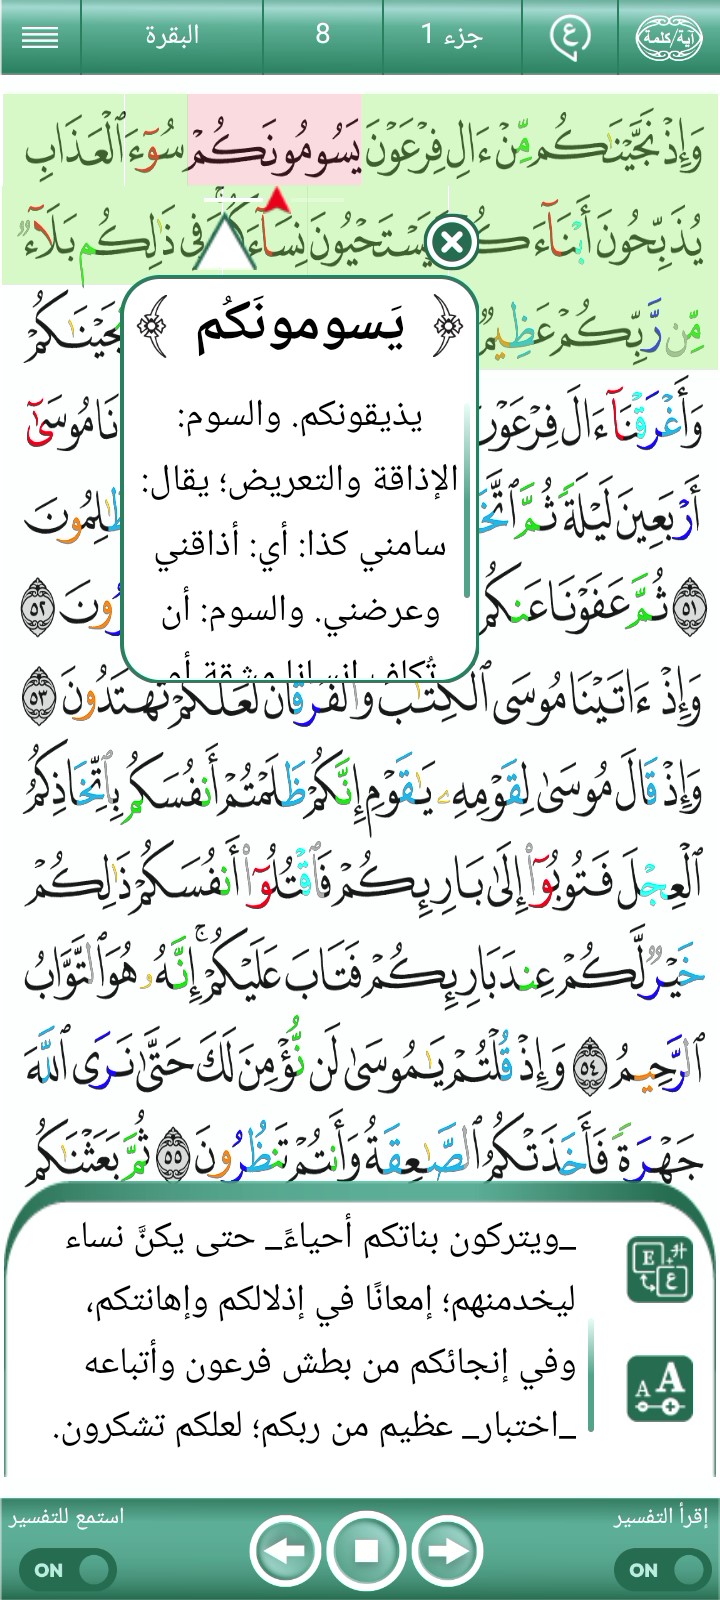 آية/كلمة ع جزء 1 8 البقرة
وَإِذْ نَجَّيْنَٰكُم مِّنْ ءَالِ فِرْعَوْنَ يَسُومُونَكُمْ سُوٓءَ ٱلْعَذَابِ
يُذَبِّحُونَ أَبْنَآءَ يَسْتَحْيُونَ نِسَآءَ فِى ذَٰلِكُم بَلَآءٌ
مِّن رَّبِّكُمْ عَظِيمٌ
وَأَغْرَقْنَآ ءَالَ فِرْعَوْنَ مُوسَىٰٓ
أَرْبَعِينَ لَيْلَةً ثُمَّ
٥١ ثُمَّ عَفَوْنَا عَنكُم ٥٢
﴿ يَسومونَكُم ﴾
يذيقونكم. والسوم:
الإذاقة والتعريض؛ يقال:
سامني كذا: أي: أذاقني
وعرضني. والسوم: أن
وَإِذْ ءَاتَيْنَا مُوسَى ٱلْكِتَٰبَ وَٱلْفُرْقَانَ لَعَلَّكُمْ تَهْتَدُونَ ٥٣
وَإِذْ قَالَ مُوسَىٰ لِقَوْمِهِۦ يَٰقَوْمِ إِنَّكُمْ ظَلَمْتُمْ أَنفُسَكُم بِٱتِّخَاذِكُمُ
ٱلْعِجْلَ فَتُوبُوٓا۟ إِلَىٰ بَارِئِكُمْ فَٱقْتُلُوٓا۟ أَنفُسَكُمْ ذَٰلِكُمْ
خَيْرٌ لَّكُمْ عِندَ بَارِئِكُمْ فَتَابَ عَلَيْكُمْ ۚ إِنَّهُۥ هُوَ ٱلتَّوَّابُ
ٱلرَّحِيمُ ٥٤ وَإِذْ قُلْتُمْ يَٰمُوسَىٰ لَن نُّؤْمِنَ لَكَ حَتَّىٰ نَرَى ٱللَّهَ
جَهْرَةً فَأَخَذَتْكُمُ ٱلصَّٰعِقَةُ وَأَنتُمْ تَنظُرُونَ ٥٥ ثُمَّ بَعَثْنَٰكُم
_ويتركون بناتكم أحياءً_ حتى يكنَّ نساء
ليخدمنهم؛ إمعانًا في إذلالكم وإهانتكم،
وفي إنجائكم من بطش فرعون وأتباعه
_اختبار_ عظيم من ربكم؛ لعلكم تشكرون.
إقرأ التفسير استمع للتفسير
ON ON